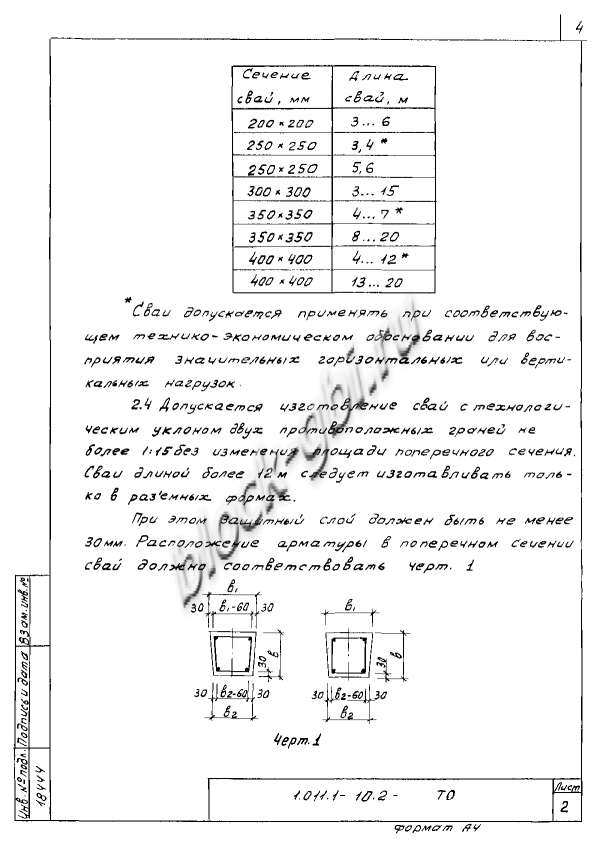 4
Сечение свай, мм | Длина свай, м
200×200 | 3...6
250×250 | 3,4*
250×250 | 5,6
300×300 | 3...15
350×350 | 4...7*
350×350 | 8...20
400×400 | 4...12*
400×400 | 13...20
*Сваи допускается применять при соответствую-
щем технико-экономическом обосновании для вос-
приятия значительных горизонтальных или верти-
кальных нагрузок.
2.4 Допускается изготовление свай с технологи-
ческим уклоном двух противоположных граней не
более 1:15 без изменения площади поперечного сечения.
Сваи длиной более 12 м следует изготавливать толь-
ко в раз'емных формах.
При этом защитный слой должен быть не менее
30 мм. Расположение арматуры в поперечном сечении
свай должно соответствовать черт. 1
в₁
30 в₁-60 30
30 в
30 в₂-60 30
в₂
в₁
30 в
30 в₂-60 30
в₂
Черт. 1
Инв. № подл. Подпись и дата Взам. инв. №
18444
1.011.1-10.2- ТО
Лист
2
формат А4
block-gbi.ru